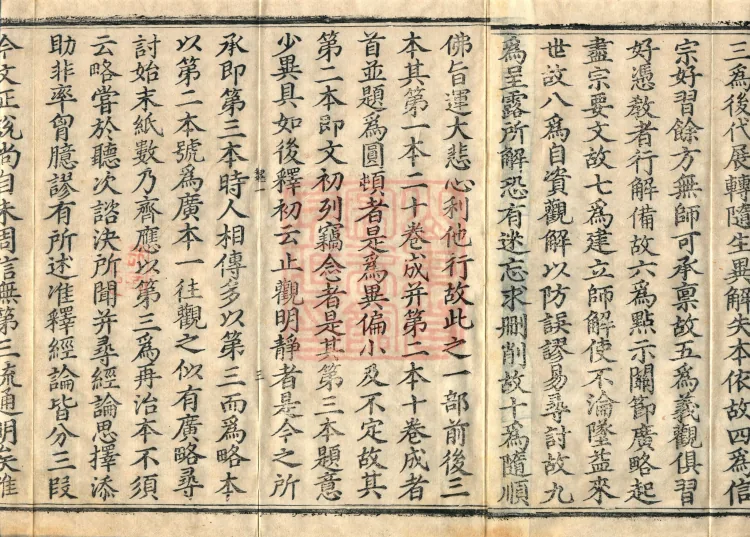 三爲後代展轉隨生異解失本依故四爲信
宗好習餘方無師可承稟故五爲義觀俱習
好憑教者行解備故六爲點示關節廣略起
盡宗要文故七爲建立師解使不淪墜益來
世故八爲自資觀解以防誤謬易尋討故九
爲呈露所解恐有迷忘求删削故十爲隨順
佛旨運大悲心利他行故此之一部前後三
本其第一本二十卷成并第二本十卷成者
首並題爲圓頓者是爲異偏小及不定故其
第二本即文初列竊念者是其第三本題意
少異具如後釋初云止觀明靜者是今之所
承即第三本時人相傳多以第三而爲略本
以第二本號爲廣本一往觀之似有廣略尋
討始末紙數乃齊應以第三爲再治本不須
云略嘗於聽次諮決所聞并尋經論思擇添
助非率胷臆謬有所述准釋經論皆分三段
今文正說尚自未周信無第三流通明矣准